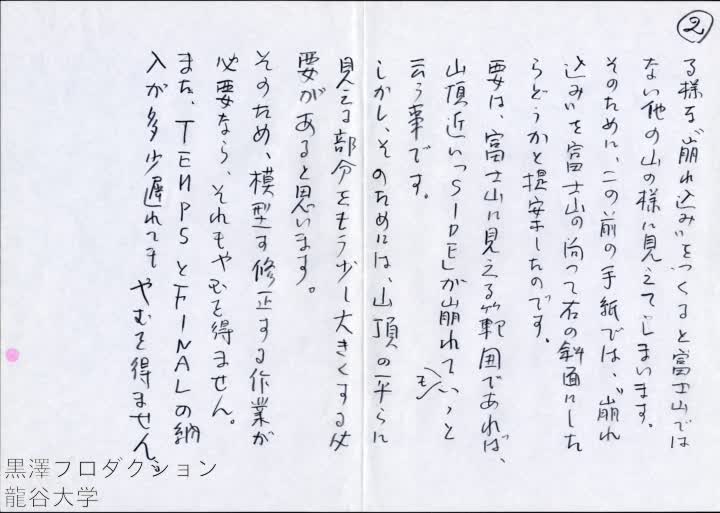 ②
る様な〝崩れ込み〟をつくると富士山では
ない他の山の様に見えてしまいます。
そのために、この前の手紙では、〝崩れ
込み〟を富士山の向って右の斜面にした
らどうかと提案したのです。
要は、富士山に見える範囲であれば、
山頂近い「SIDE」が崩れていいと
も
云う事です。
しかし、そのためには、山頂の平らに
見える部分をもう少し大きくする必
要があると思います。
そのため、模型を修正する作業が
必要なら、それもやむを得ません。
また、TEMPSとFINALの納
入が多少遅れても やむを得ません。
黒澤プロダクション
龍谷大学